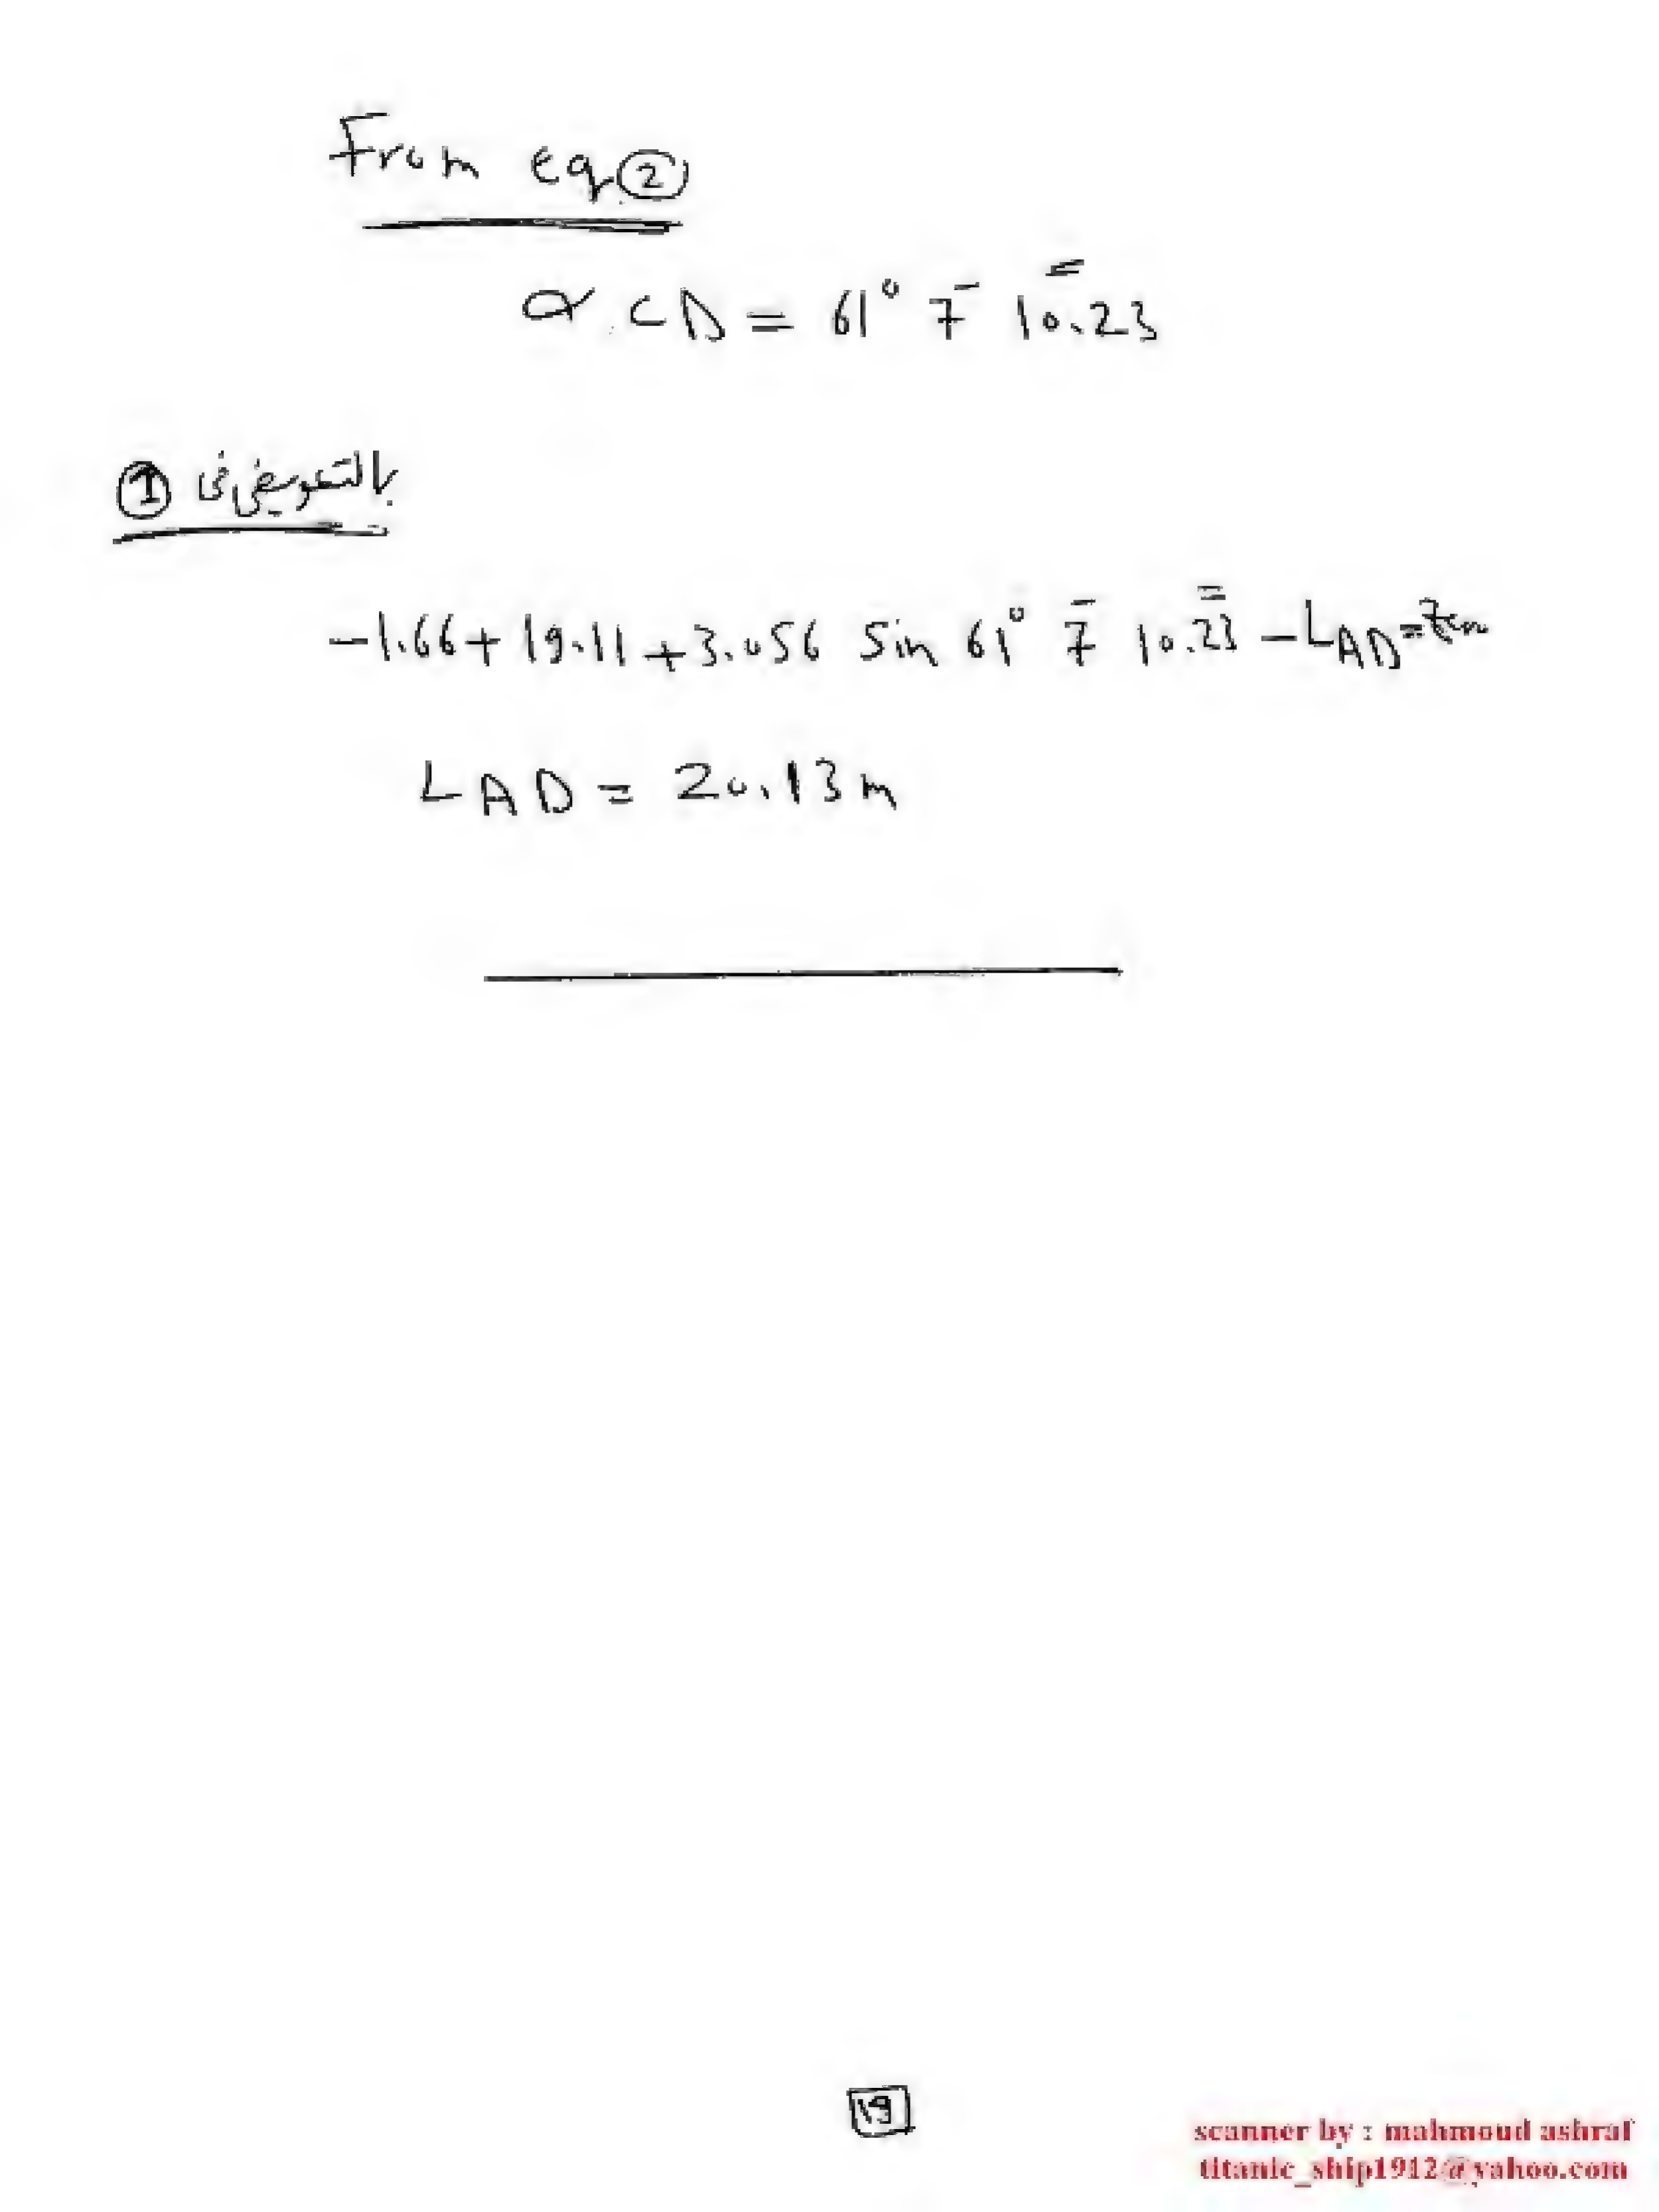 From eq ②
α CD = 61° 7̄ 10.2̿3
بالتعويض فى ①
-1.66 + 19.11 + 3.056 Sin 61° 7̄ 10.2̿3 - LAD =
LAD = 20.13 m
19
scanner by : mahmoud ashraf
titanic_ship1912@yahoo.com